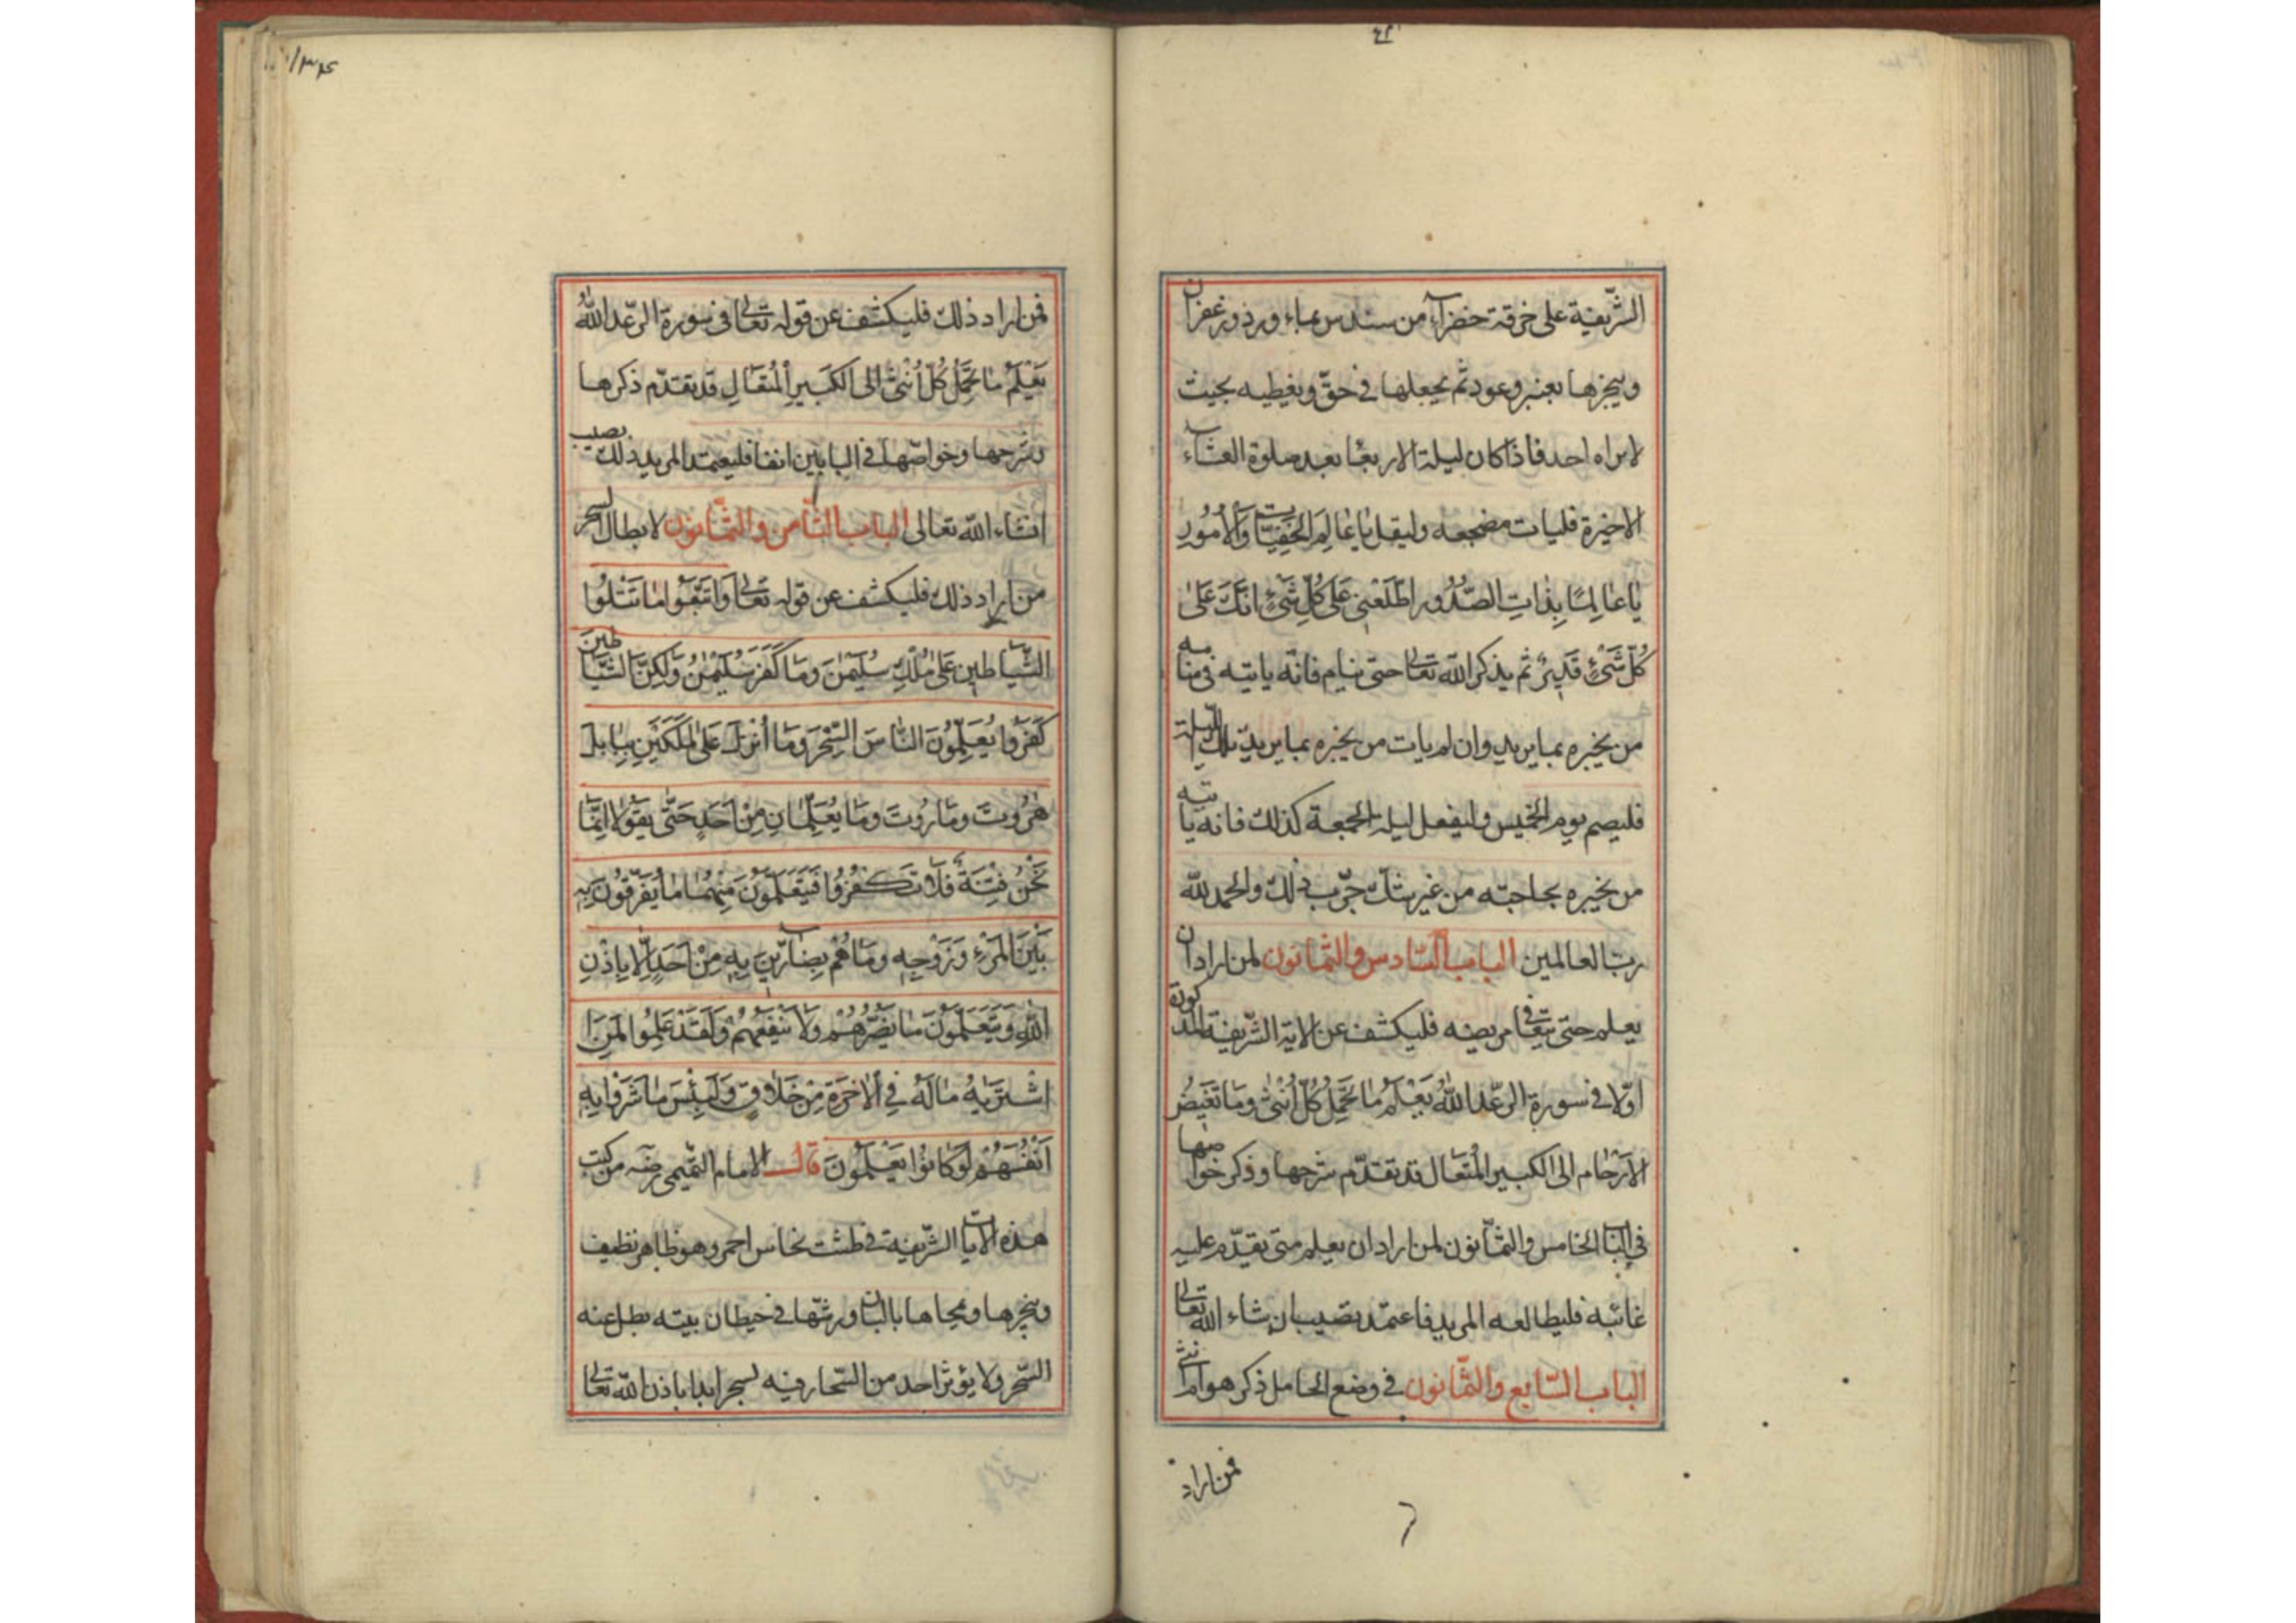 الشّريفة على خرقة خضراء من سندس بماء ورد وزعفران
ويبخرها بعنبر وعود ثم يجعلها في حقّ ويغطيه بحيث
لا يراه احد فاذا كان ليلة الاربعا بعد صلوة العشاء
الاخيرة فليات مضجعه وليقل يَا عَالِمَ الخَفِيَّات وَالاُمُورِ
يَا عَالِمًا بِذَاتِ الصُّدُورِ اطْلَعْنِي عَلَى كُلِّ شَيْءٍ اِنَّكَ عَلَى
كُلِّ شَيْءٍ قَدِيرٌ ثم يذكر الله تعالى حتى ينام فانّه ياتيه في منامه
من يخبره بما يريد وان لم يات من يخبره بما يريد تلك الليلة
فليصم يوم الخميس وليفعل ليلة الجمعة كذلك فانه ياتيه
من يخبره بحاجته من غير شكّ جرّب ذلك والحمد لله
ربّ العالمين الباب السّادس والثمانون لمن اراد ان
يعلم حتى يتعافى مريضه فليكشف عن الاية الشّريفة المذكورة
اوّلا في سورة الرّعد اَللهُ يَعْلَمُ مَا تَحْمِلُ كُلُّ اُنْثَى وَمَا تَغِيضُ
الاَرْحَام الى الكبير المُتَعَال قد تقدّم شرحها وذكر خواصها
في الباب الخامس والثمّانون لمن اراد ان يعلم متى يقدّم عليه
غائبه فليطالعه المريد فاعتمد تصيب ان شاء الله تعالى
الباب السّابع والثّمانون في وضع الحامل ذكر هو ام انثى
فمن اراد
فمن اراد ذلك فليكشف عن قوله تعالى في سورة الرّعد اَللهُ
يَعْلَمُ مَا تَحْمِلُ كُلُّ اُنْثَى الى الكَبِيرِ المُتَعَالِ قد تقدّم ذكرها
بشرحها وخواصّها في البابين انفا فليعتمد المريد ذلك يصيب
انشاء الله تعالى الباب الثّامن والثّمانون لابطال السحر
من اراد ذلك فليكشف عن قوله تعالى وَاتَّبَعُوا مَا تَتْلُوا
الشَّيَاطِين عَلَى مُلْكِ سُلَيْمٰنَ وَمَا كَفَرَ سُلَيْمٰنُ وَلَكِنَّ الشَّيَاطِينَ
كَفَرُوا يُعَلِّمُونَ النَّاسَ السِّحْرَ وَمَا اُنْزِلَ عَلَى المَلَكَيْنِ بِبَابِلَ
هٰرُوتَ وَمَارُوتَ وَمَا يُعَلِّمَانِ مِنْ اَحَدٍ حَتَّى يَقُولَا اِنَّمَا
نَحْنُ فِتْنَةٌ فَلَا تَكْفُرْ فَيَتَعَلَّمُونَ مِنْهُمَا مَا يُفَرِّقُونَ بِهِ
بَيْنَ المَرْءِ وَزَوْجِهِ وَمَا هُمْ بِضَارِّينَ بِهِ مِنْ اَحَدٍ اِلَّا بِاِذْنِ
اللهِ وَيَتَعَلَّمُونَ مَا يَضُرُّهُمْ وَلَا يَنْفَعُهُمْ وَلَقَدْ عَلِمُوا لَمَنِ
اشْتَرَيهُ مَا لَهُ فِي الاٰخِرَةِ مِنْ خَلَاقٍ وَلَبِئْسَ مَا شَرَوْا بِهِ
اَنْفُسَهُمْ لَوْ كَانُوا يَعْلَمُونَ قال الامام التّميمي رضه من كتب
هذه الايات الشّريفة في طشت نحاس احمر وهو طاهر نظيف
ويبخرها ومحاها ورشّها في حيطان بيته بطل عنه
السّحر ولا يؤثر احد من السّحار فيه لسحر ابدا باذن الله تعالى